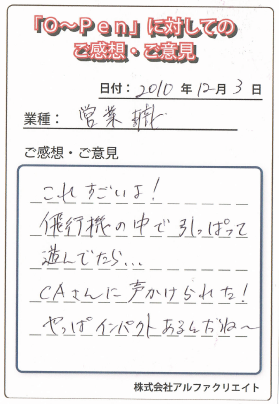 「O～Pen」に対しての
ご感想・ご意見
日付：2010年12月3日
業種：営業
ご感想・ご意見
これすごいよ！
飛行機の中で引っぱって
遊んでたら…
CAさんに声かけられた！
やっぱインパクトあるんだね～
株式会社アルファクリエイト